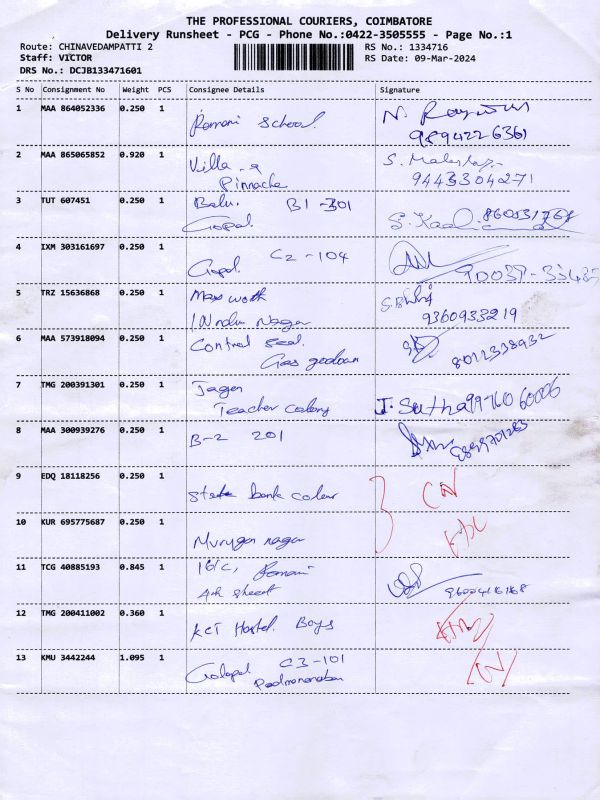 THE PROFESSIONAL COURIERS, COIMBATORE
Delivery Runsheet - PCG - Phone No.:0422-3505555 - Page No.:1
Route: CHINAVEDAMPATTI 2
Staff: VICTOR
DRS No.: DCJB133471601
RS No.: 1334716
RS Date: 09-Mar-2024
S No Consignment No Weight PCS Consignee Details Signature
1 MAA 864052336 0.250 1 Ramani School.
9894226361
2 MAA 865065852 0.920 1 Villa
Pinnacle
9443304271
3 TUT 607451 0.250 1 Balu. B1-301
Gopal
4 IXM 303161697 0.250 1 Gopal C2-104
5 TRZ 15636868 0.250 1 Max worth
Indru Nagar
9360933219
6 MAA 573918094 0.250 1
Gas godown
8012338932
7 TMG 200391301 0.250 1 Jagan
Teacher colony
J. Sutha
8 MAA 300939276 0.250 1 B-2 201
9 EDQ 18118256 0.250 1 State bank colony
CN
10 KUR 695775687 0.250 1 Murugan nagar
11 TCG 40885193 0.845 1 Ramani
4th street
9600416168
12 TMG 200411002 0.360 1 KCT Hostel Boys
13 KMU 3442244 1.095 1 C3-101
CN